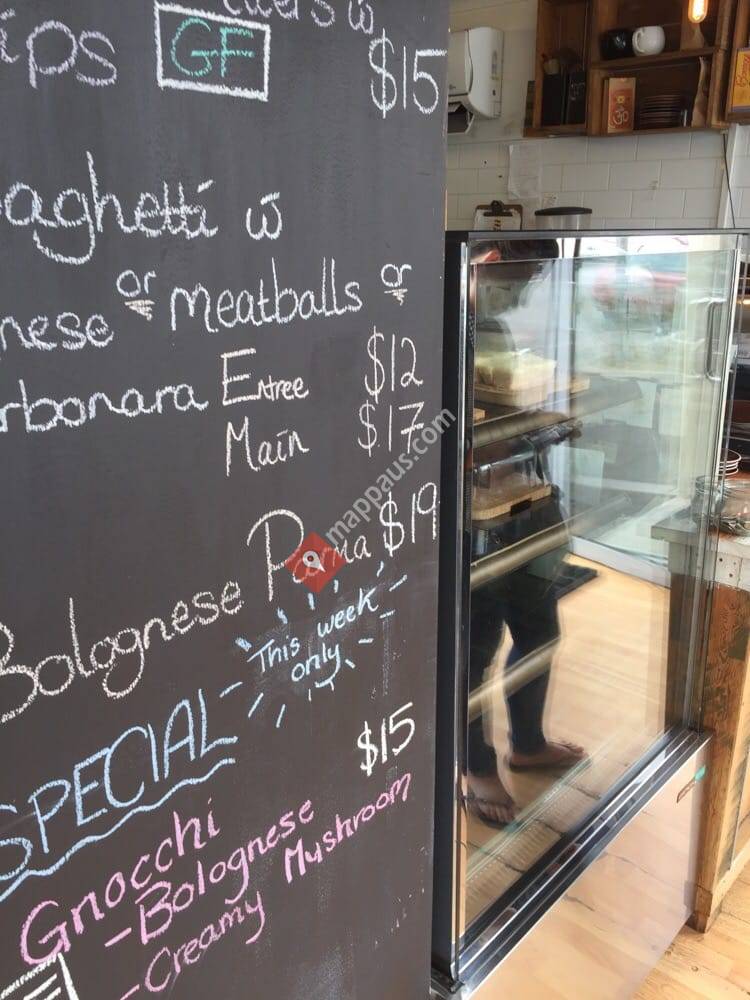 GF
$15
aghetti w̄
nese or Meatballs or
rbonara Entree $12
Main $17
Bolognese Parma $19
This week
only
SPECIAL
$15
Gnocchi
- Bolognese
- Creamy Mushroom
mappaus.com